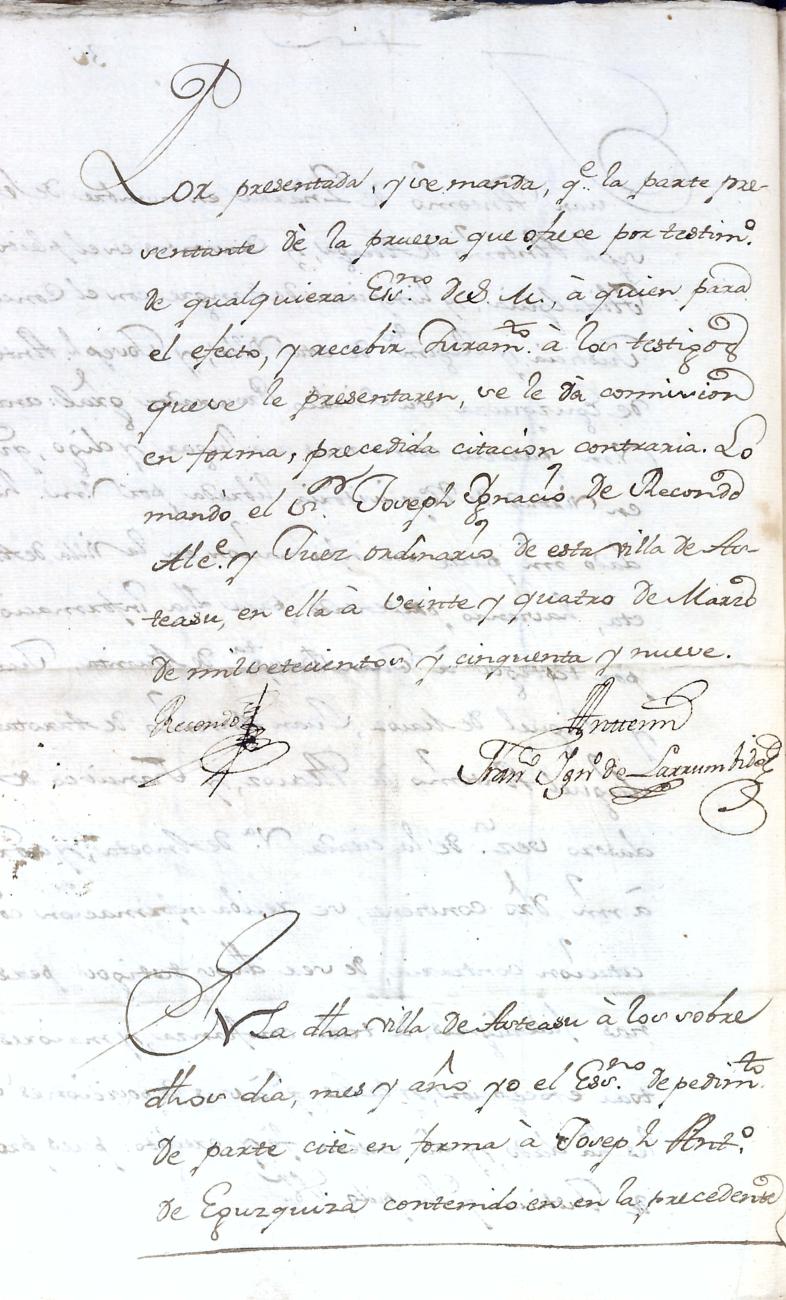 Por presentada, y se manda, q.e la parte pre-
sentante dè la prueva que ofrece por testim.o
de qualquiera Es.no de S. M., à quien para
el efecto, y recebir Juram.to à los testigos
que se le presentaren, se le dà comision
en forma, precedida citacion contraria. Lo
mandó el S.r Joseph Ignacio de Recondo
Alc.e y Juez ordinario de esta villa de As-
teasu, en ella à veinte y quatro de Marzo
de mil setecientos y cinquenta y nueve.
Recondo
Antemi
Fran.co Ign.o de Larrumbide
En La dha villa de Asteasu à los sobre
dhos dia, mes y año yo el Ess.no de pedim.to
de parte citè en forma à Joseph Ant.o
de Eguzquiza contenido en en la precedente